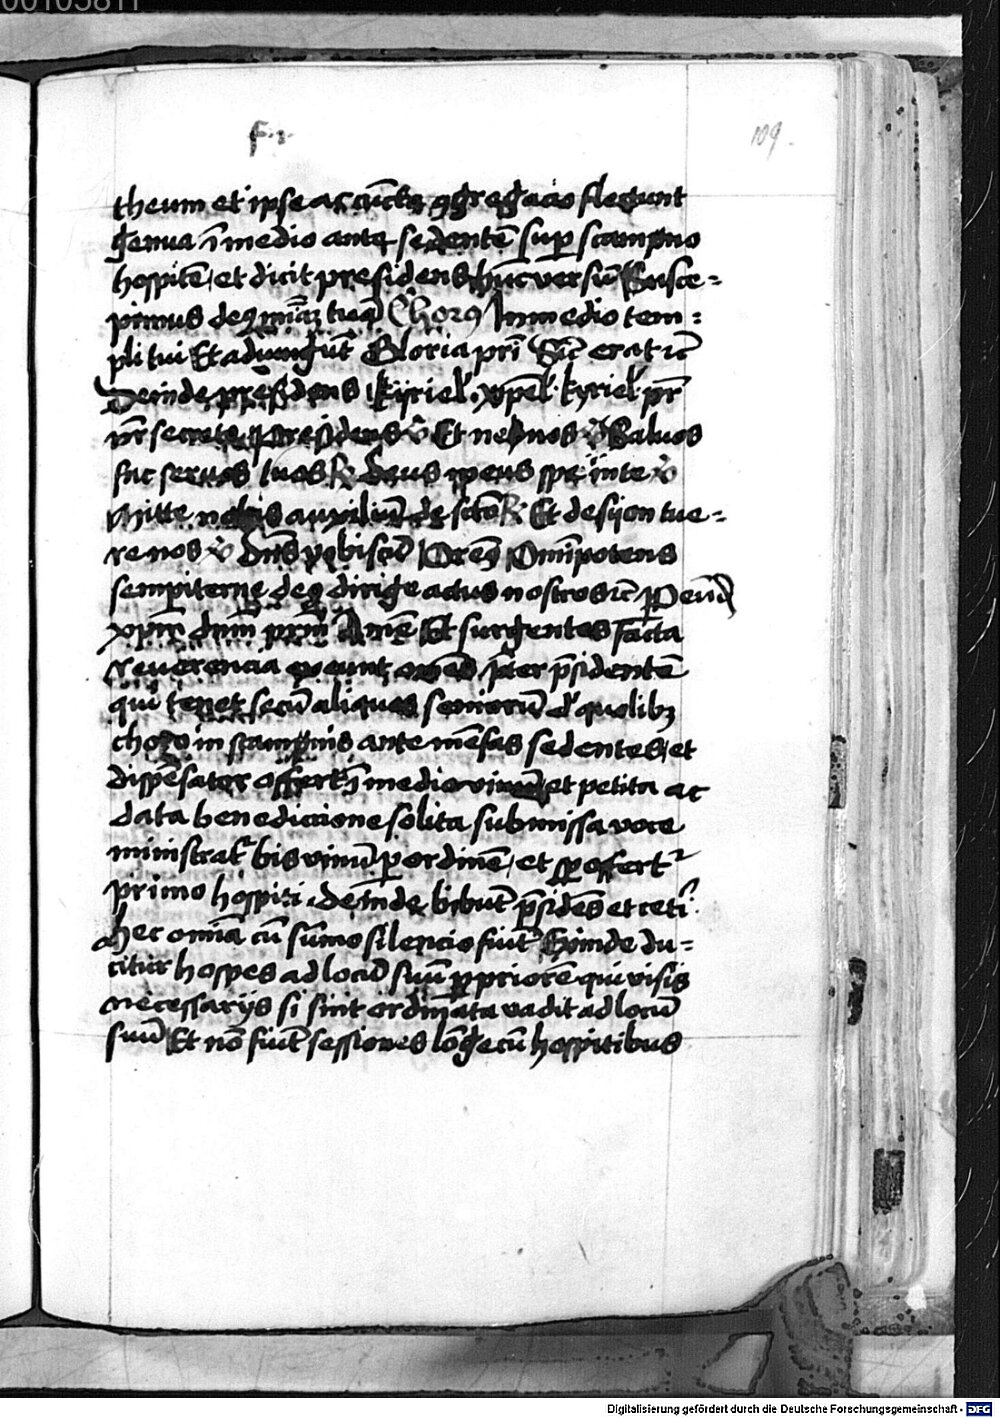 00105811
109.
theum et ipse ac cūcta ꝯgregacio flectunt
genua ī medio ante sedentē sup scampno
hospitē et dicit presidens hūc versū Susce-
pimus deꝰ miāꝫ tuā Chorꝰ In medio tem-
pli tui Et adiungūt Gloria pri Sic erat
Deinde presidens kyriel xp̄el kyriel pr̄
nr̄ secrete presidens ℣ Et ne nos ℣ Saluos
fac seruos tuos ℟ deus meus ℣
Mitte nobis auxiliū de scō ℟ Et de syon tue-
re nos ℣ Dn̄s vobiscū Oremꝰ Omīpotens
sempiterne deꝰ dirige actus nostros
xpm̄ dn̄m nrm̄ Amē Et surgentes facta
reuerencia exeunt om̄es p̄ter p̄sidentē
qui tenet secū aliquos seniorū de quolibꝫ
choro in scampnis ante mēsas sedentes et
dispēsator offert ī medio vinū et petita ac
data benediccione solita submissa voce
ministrat bis vinū ꝑ ordinē et
primo hospiti deīnde bibūt p̄sidēs et ceti
hec om̄ia cū sūmo silencio fiūt Exinde du-
citur hospes ad locū suū ꝑ priorē qui visis
necessarijs si sint ordinata vadit ad locū
suū Et nō fiūt sessiones lōge cū hospitibus
Digitalisierung gefördert durch die Deutsche Forschungsgemeinschaft - DFG